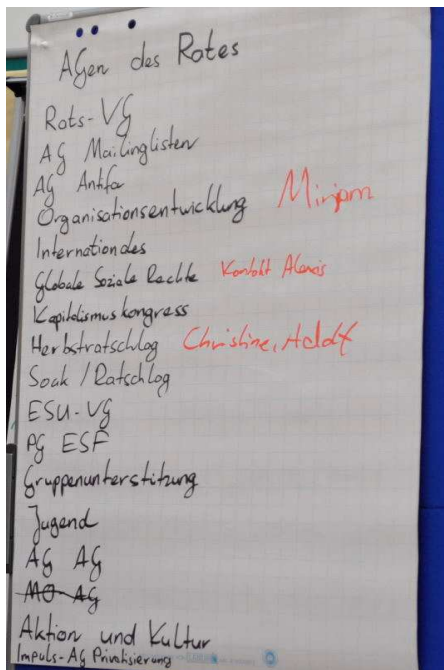 AGen des Rates
Rats-VG
AG Mailinglisten
AG Antifa
Organisationsentwicklung Mirjam
Internationales
Globale Soziale Rechte Kontakt Alexis
Kapitalismuskongress
Herbstratschlag Christine,
Soak / Ratschlag
ESU-VG
PG ESF
Gruppenunterstitzung
Jugend
AG AG
MO-AG
Aktion und Kultur
Impuls-AG Privatisierung